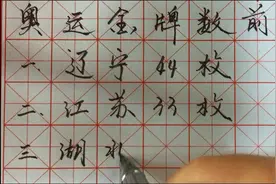 奥运金牌数前
一、辽宁44枚
二、江苏33枚
三湖